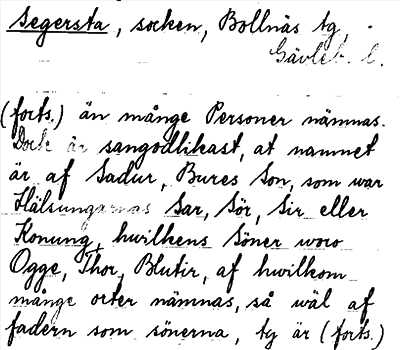 Segersta, socken, Bollnäs tg,
Gävleb. l.
(forts.) än många Personer nämnas.
Dock är sangodlikast, at namnet
är af Sadur, Bures Son, som war
Hälsungarnas Sar, Sör, Sir eller
Konung, hwilkens Söner woro
Ogge, Thor, Blutir, af hwilkom
många orter nämnas, så wäl af
fadern som sönerna, ty är (forts.)